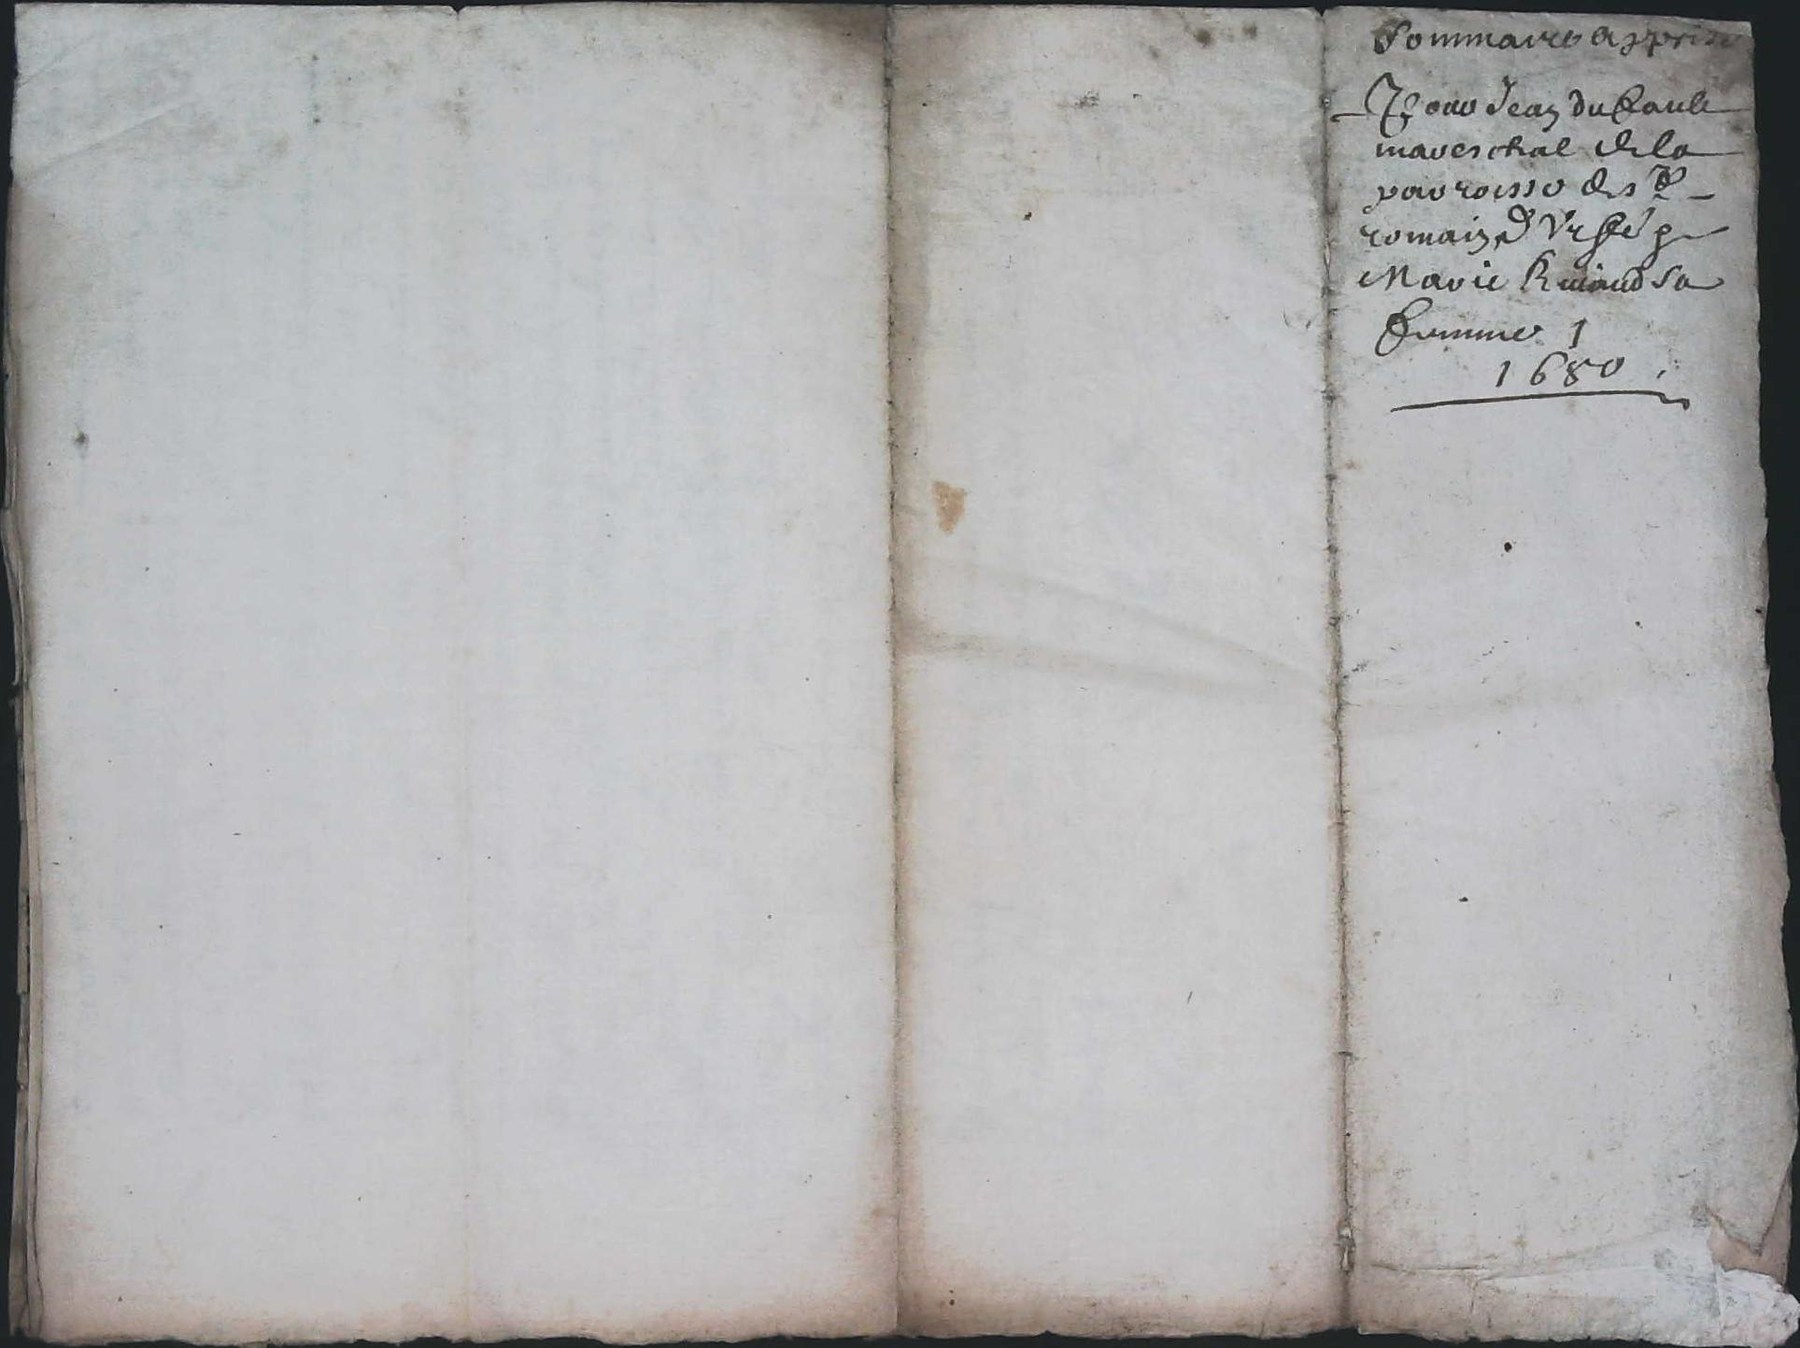 Sommaire apprise
Pour Jean du Faule
mareschal de la
parroisse de St
romain d'Urfé &
Marie Riviaud sa
femme 1
1680